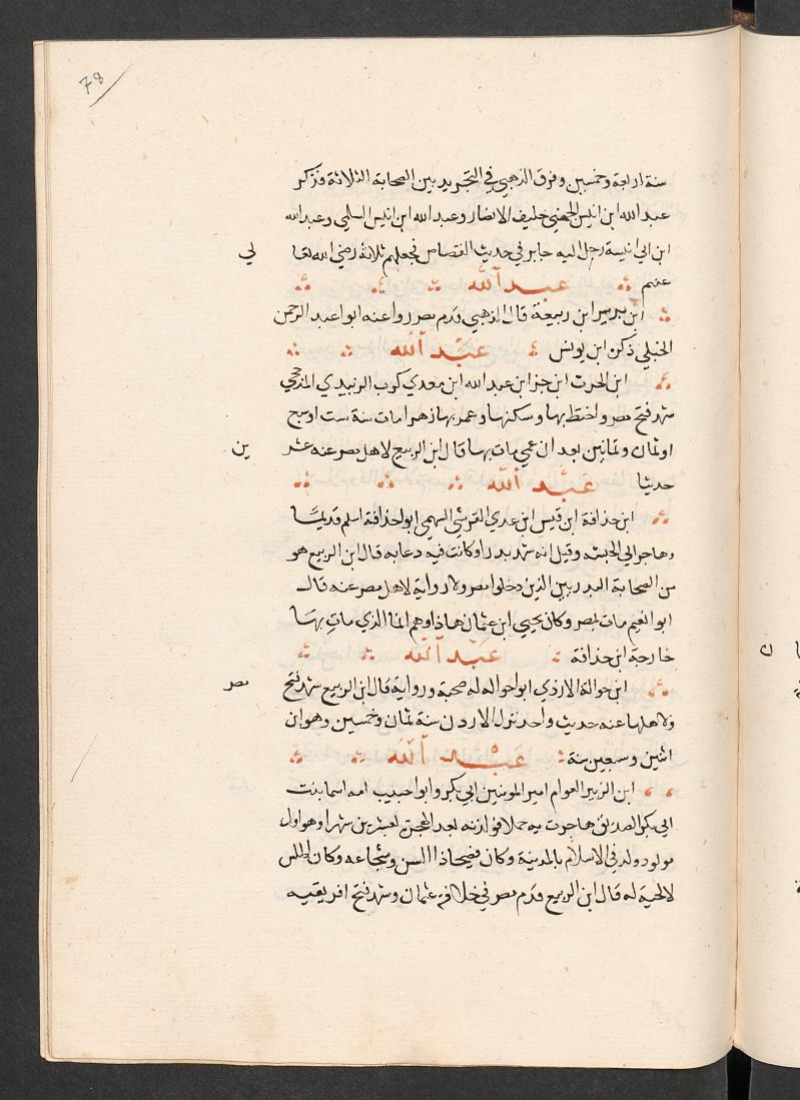 78
سنة اربعة وخمسين وفرق الذهبي في التجريد بين الصحابة الثلاثة فذكر
عبد الله ابن انيس الجهني حليف الانصار وعبد الله ابن انيس السلمي وعبد الله
ابن ابي انيسة رجل اليه جابر في حديث القصاص فجعلهم ثلاثة رضي الله تعا لي
عنهم عبد الله
ابن بربير ابن ربيعة قال الذهبي قدم مصر روا عنه ابوا عبد الرحمن
الحبلي ذكره ابن يونس عبد الله
ابن الحرث ابن جز ابن عبد الله ابن معدي كرب الزبيدي المذحجي
شهد فتح مصر واختط بها وسكنها وعمر بها زهرا مات سنة ست او سبع
او ثمان وثمانين بعد ان عمي مات بها قال ابن الربيع لاهل مصر عنه عشر ين
حديثا عبد الله
ابن حذافة ابن قيس ابن عدي القرشي السهمي ابوا حذافة اسلم قديما
وهاجر الي الحبشه وقيل انه شهد بدرا وكانت فيه دعابه قال ابن الربيع هو
من الصحابة البدريين الذين دخلوا مصر ولا رواية لاهل مصر عنه قال
ابوا نعيم مات بمصر وكان يحيي ابن عثمان هاذا وهم انما الذي مات بها
خارجة ابن حذافة عبد الله
ابن حوالة الازدي ابوا حواله له صحبة ورواية قال ابن الربيع شهد فتح مصر
ولاهلها عنه حديث واحد نزل الاردن سنة ثمان وخمسين وهو ابن
اثنين وسبعين سنة عبد الله
ابن الزبير العوام امير المومنين ابي بكر وابوا حبيب امه اسما بنت
ابي بكر الصديق هاجرت به حملا فولدته بعد الهجرة لعشرين شهرا وهو اول
مولود ولد في الاسلام بالمدينة وكان فصيحا ذا السن وشجاعه وكان اطلس
لا لحية له قال ابن الربيع قدم مصر في خلافة عثمان وشهد فتح افريقيه